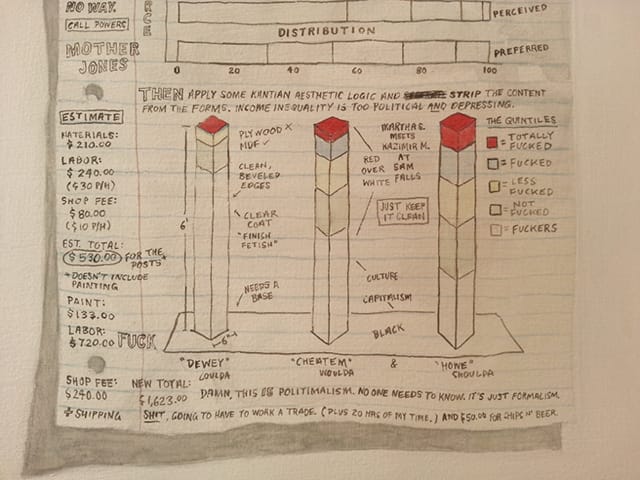 NO WAY.
CALL POWERS
MOTHER
JONES
R
C
E
PERCEIVED
DISTRIBUTION
PREFERRED
0 20 40 60 80 100
THEN APPLY SOME KANTIAN AESTHETIC LOGIC AND STRIP THE CONTENT
FROM THE FORMS. INCOME INEQUALITY IS TOO POLITICAL AND DEPRESSING.
ESTIMATE
MATERIALS:
$210.00
LABOR:
$240.00
($30 P/H)
SHOP FEE:
$80.00
($10 P/H)
EST. TOTAL:
$530.00 FOR THE
POSTS*
*DOESN'T INCLUDE
PAINTING
PAINT:
$133.00
LABOR:
$720.00 FUCK
SHOP FEE:
$240.00
+ SHIPPING
6'
PLYWOOD X
MDF ✓
CLEAN,
BEVELED
EDGES
CLEAR
COAT
"FINISH
FETISH"
NEEDS A
BASE
6"
MARTHA S.
MEETS
KAZIMIR M.
AT
SAM
FALLS
RED
OVER
WHITE
JUST KEEP
IT CLEAN
CULTURE
CAPITALISM
BLACK
THE QUINTILES
= TOTALLY
FUCKED
= FUCKED
= LESS
FUCKED
= NOT
FUCKED
= FUCKERS
"DEWEY" "CHEATEM" & "HOWE"
COULDA WOULDA SHOULDA
NEW TOTAL:
$1,623.00
DAMN, THIS IS POLITIMALISM. NO ONE NEEDS TO KNOW. IT'S JUST FORMALISM.
SHIT, GOING TO HAVE TO WORK A TRADE. (PLUS 20 HRS OF MY TIME.) AND $50.00 FOR CHIPS N' BEER.